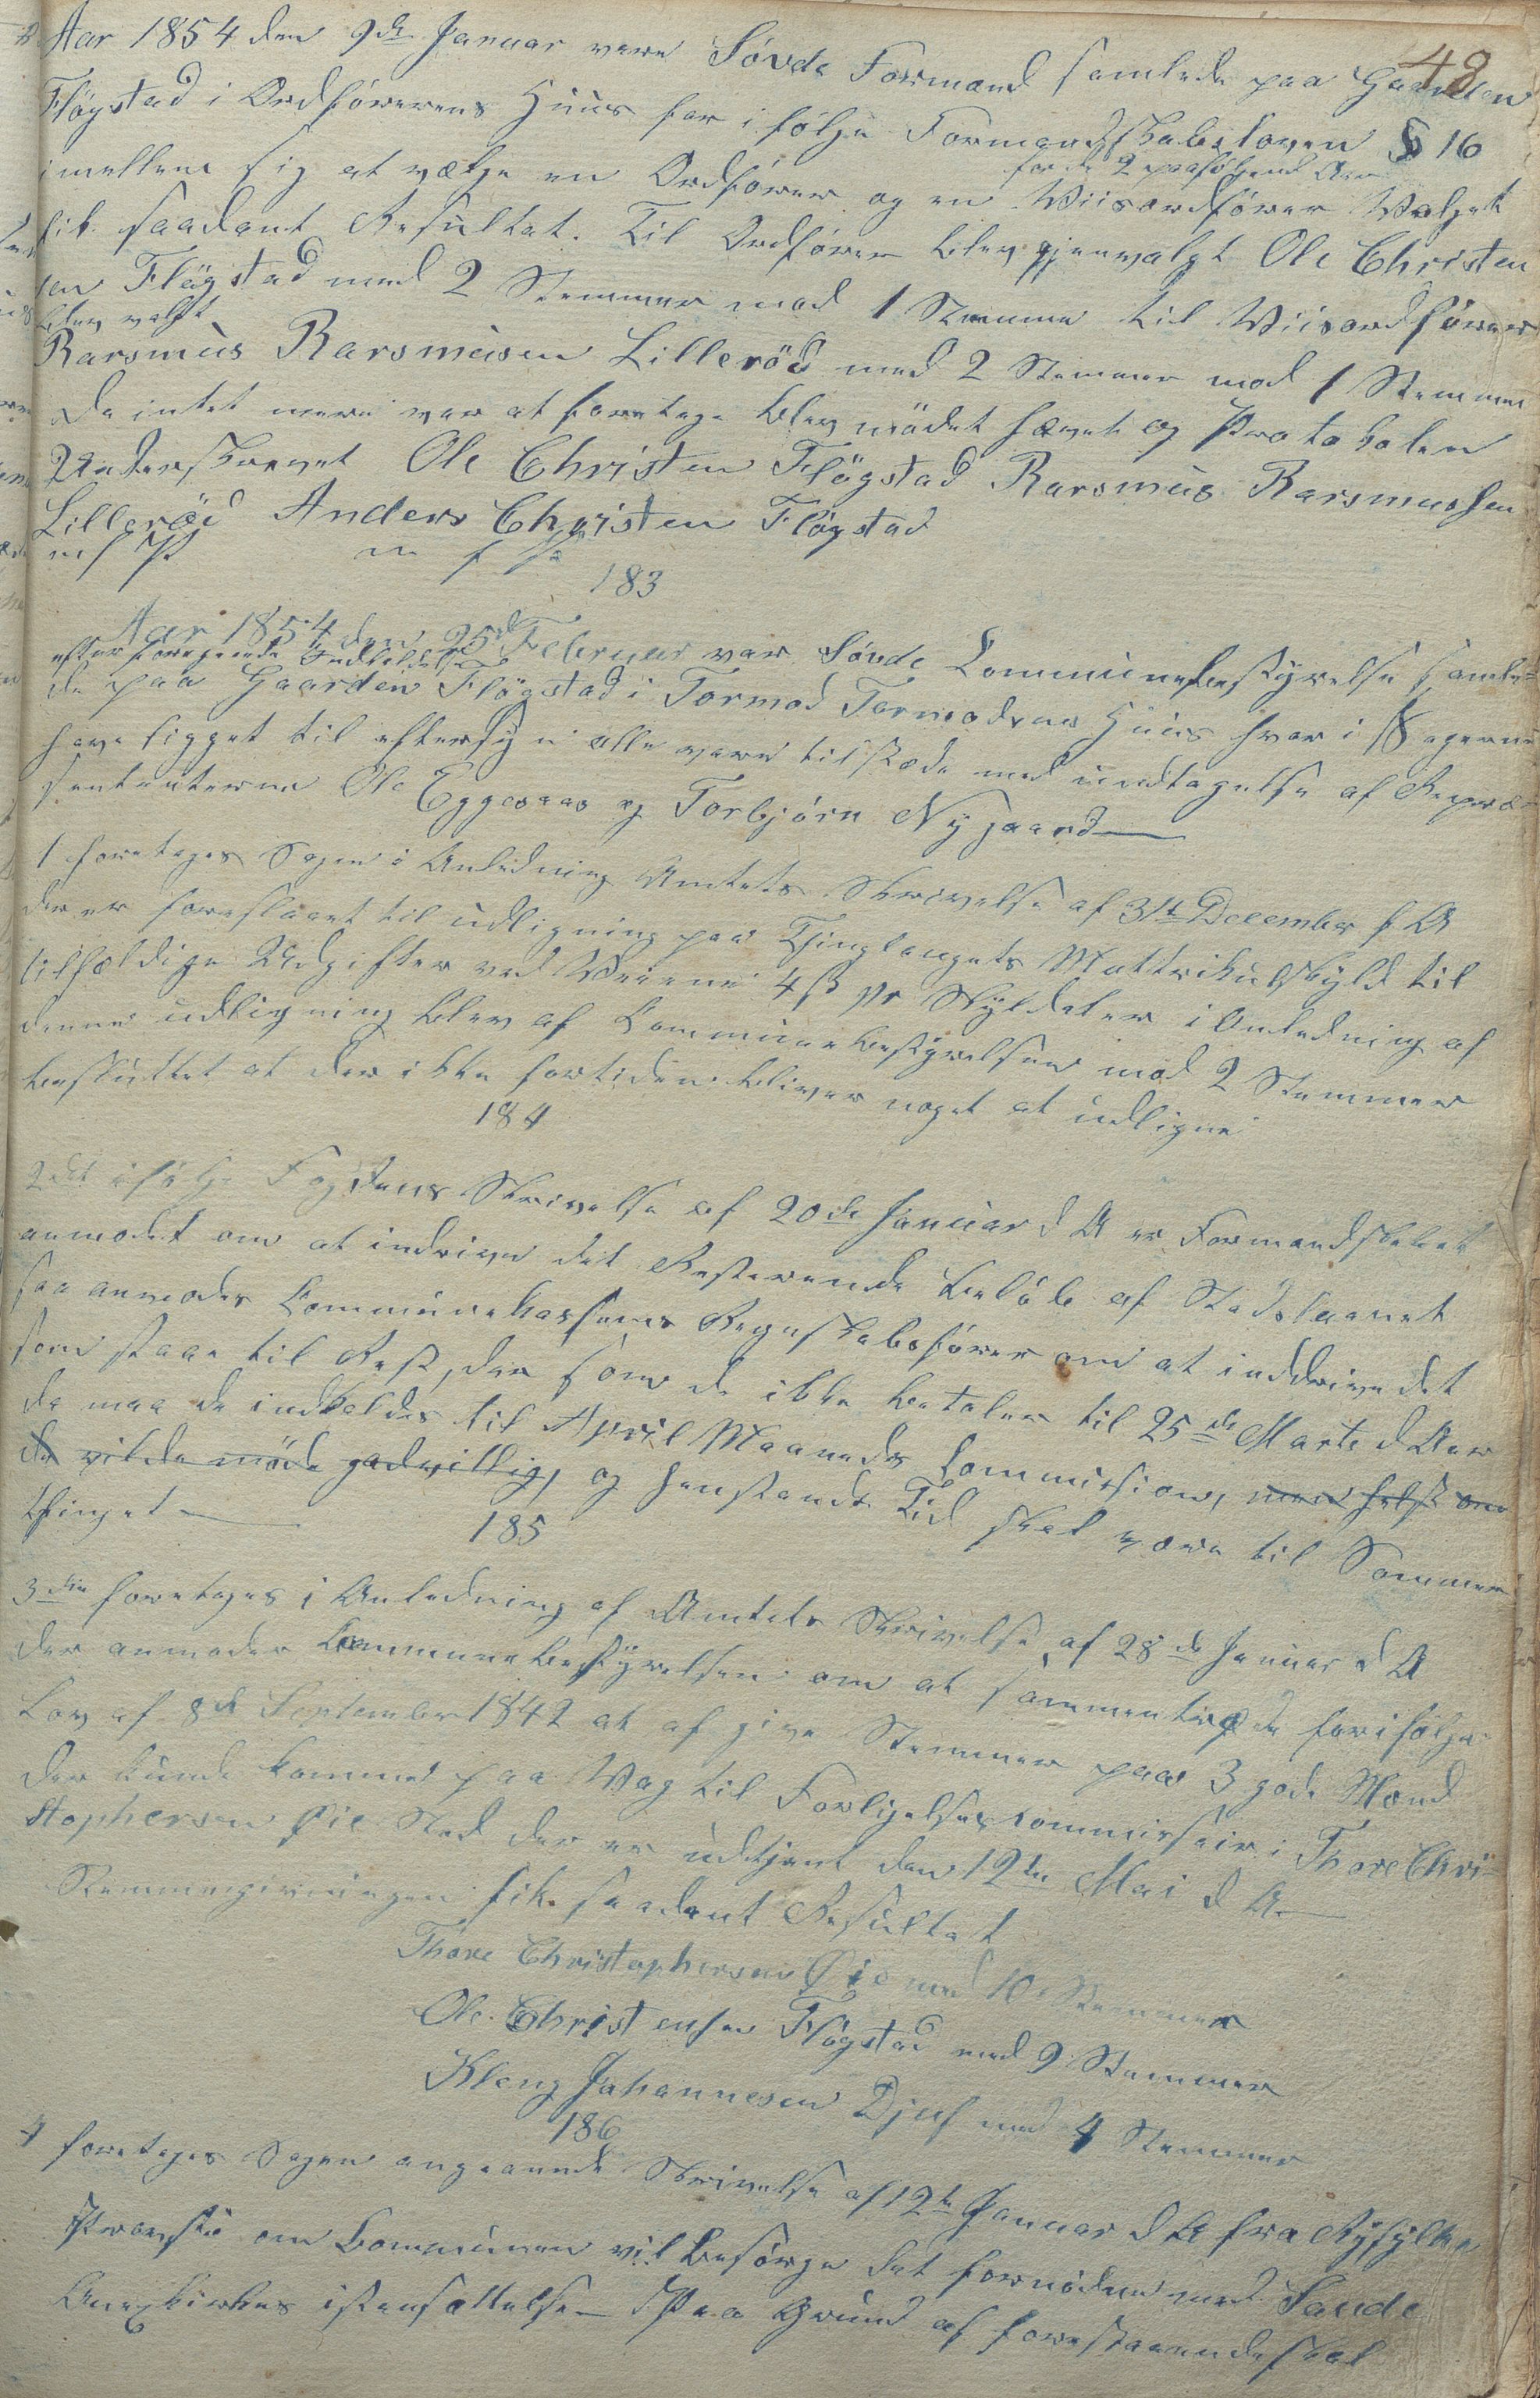 48
Aar 1854 den 9de Januar vare Søvde Formænd samlede paa Gaarden
Fløgstad i Ordførerens Huus for i følge Formandskabsloven § 16
imellem sig at vælge en Ordfører og en Viisordfører for de 2 paafølgende Aar Valget
fik saadant Resultat. Til Ordfører blev gjenvalgt Ole Christen
sen Fløgstad med 2 Stemmer mod 1 Stemme til Viisordfører
blev valgt
Rarsmus Rarsmusen Lillerød med 2 Stemmer mod 1 Stemme
Da intet mere var at foretage blev mødet hævet og Protokolen
Underskrevet Ole Christen Fløgstad Rarsmus Rarsmussen
Lillerød Anders Christen Fløgstad
m f P m f P
183
Aar 1854 den 25de Februar var Søvde Communebestyrelse samle=
efter foregaaende Indkaldelse
de paa Gaarden Fløgstad i Tormod Tormodsens Huus hvor i Sagerne
have ligget til eftersyn alle vare tilstæde med undtagelse af Repræ
sentanterne Ole Eggesaas og Torbjørn Nygaard
1 foretages Sagen i Anledning Amtets Skrivelse af 31t December f A
der er foreslaaet til udligning paa Thinglaugets Mattrikulskyld til
tilfældige Udgifter ved Veiene 4 ß pr Skyldaler i Anledning af
denne udligning blev af Communebestyrelsen mod 2 Stemmer
besluttet at der ikke fortiden bliver noget at udligne
184
2det ifølge Fogdens Skrivelse af 20de Januar d A er Formandskabet
anmodet om at indrive det Resterende beløb af Stadslaanet
saa anmodes Communekassens Regnskabsfører om at inddrive det
som staae til Rest, der som de ikke betaler til 25de Marts d Aar
da maa de indkaldes til April Maaneds Commission, men helst om
de vilde møde godvillig, og henstands Tid skal være til Sommer
thinget
185
3die foretages i Anledning af Amtets Skrivelse af 28de Januar d A
der anmoder Communebestyrelsen om at sammentræde for ifølge
Lov af 8de September 1842 at af give Stemmer paa 3 gode Mænd
der kunde komme paa Valg til Forligelsescommissair i Thore Chri=
stophersen Øie Sted der er udtjent den 12te Mai d A
Stemmegivningen fik saadant Resultat
Thore Christophersen Øie med 10 Stemmer
Ole Christensen Fløgstad med 9 Stemmer
Kleng Johannesen Djuf med 4 Stemmer
186
4 foretages Sagen angaaende Skrivelse af 12te Januar d A fra Ryfylke
Provstie om Communen vil besørge det fornødne med Sande
Anexkirkes istansættelse – Paa Grund af forestaaende skal